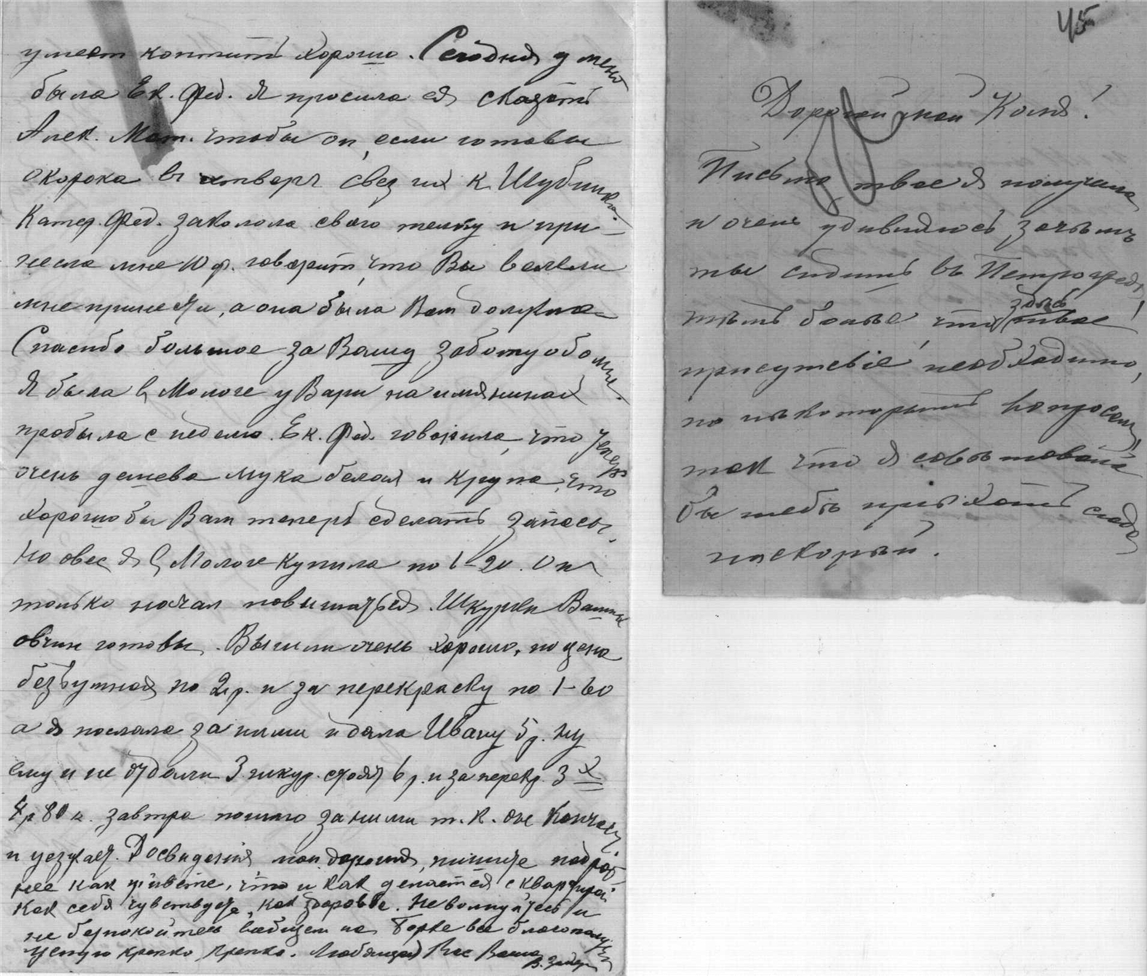 умеют коптить хорошо. Сегодня у меня
была Ек. Фед. я просила ея сказать
Алек. Мат. чтобы он, если готовы
окорока в четверг свез их к Шубин
Катер. Фед. заколола свого телку и при-
несла мне 10 ф. говорит, что Вы велели
мне принести, а она была Вам должна
Спасибо большое за Вашу заботу обо мне.
Я была в Мологе у Вари на имянинах
пробыла с неделю. Ек. Фед. говорила, что теперь
очень дешева мука белая и крупа, что
хорошо бы Вам теперь сделать запасы.
Но овес я в Мологе купила по 1-20. Он
только начал повышаться. Шкурки Ваши
овчин готовы. Вышли очень хорошо, но цена
безбутная по 2 р. и за перекраску по 1-60
а я послала за ними и дала Ивану 5 р. ну
ему и не отдали 3 шкур. стоят 6 р. и за перекр. 3х
4 р 80 к. завтра пошлю за ними т. к. он кончает
и уезжает. Досвидания мои дорогия, пишите подроб-
нее как живете, что и как делается с квартирой
как себя чувствуете, как здоровье. Не волнуйтесь и
не безпокойтесь вообщем на Борке все благополучно
целую крепко, крепко. Любящая Вас Ваша
В.
45
Дорогой мой Коля!
Письмо твое я получила
и очень удивилась зачемъ
ты сидишь въ Петрограде,
темъ более что здесь твое
присутсвiе необходимо,
по некоторымъ вопросам,
так что я советовала
бы тебе прiехать сюда
поскорый.